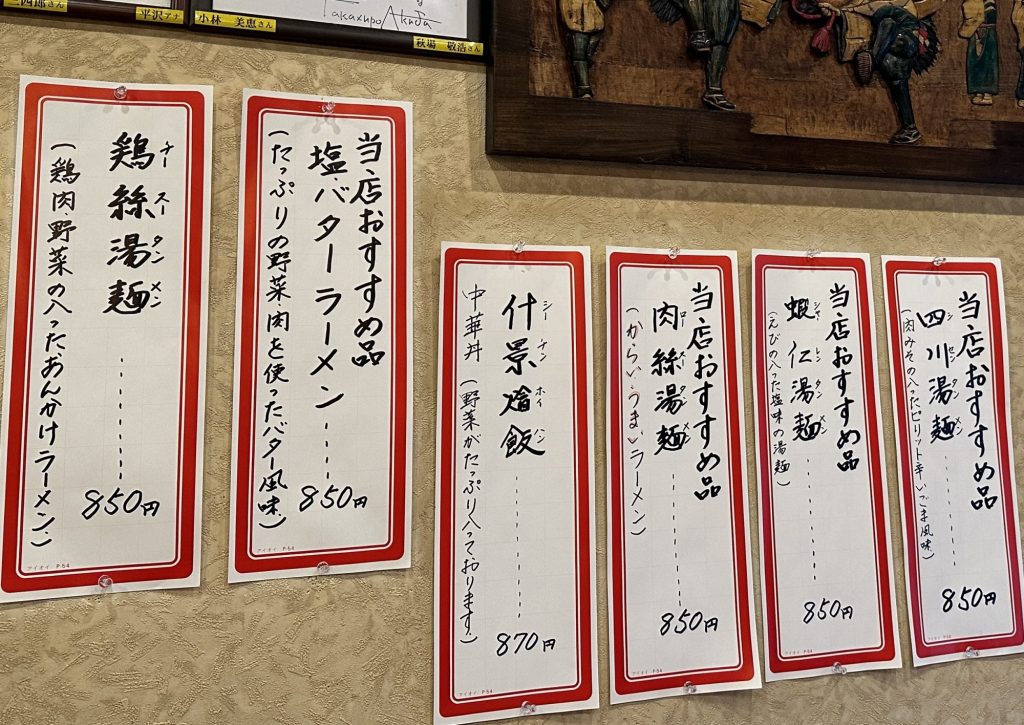 三四郎さん
平沢アナ
小林 美恵さん
Takaxupo Akuta
萩場 敬浩さん
鶏絲湯麺 850円
チースータンメン
(鶏肉、野菜の入った、あんかけラーメン、)
アイオイ P-54
当店おすすめ品
塩・バターラーメン 850円
(たっぷりの野菜、肉を使ったバター風味、)
アイオイ P-54
什景燴飯 870円
シーチンホイハン
中華丼(野菜がたっぷり入っております、)
アイオイ P-54
当店おすすめ品
肉絲湯麺 850円
ロースータンメン
(からい、うまいラーメン)
アイオイ P-54
当店おすすめ品
蝦仁湯麺 850円
シャレンタンメン
(えびの入った塩味の湯麺)
当店おすすめ品
四川湯麺 850円
シセンタンメン
(肉みその入ったピリット辛いごま風味、)
アイオイ P-54